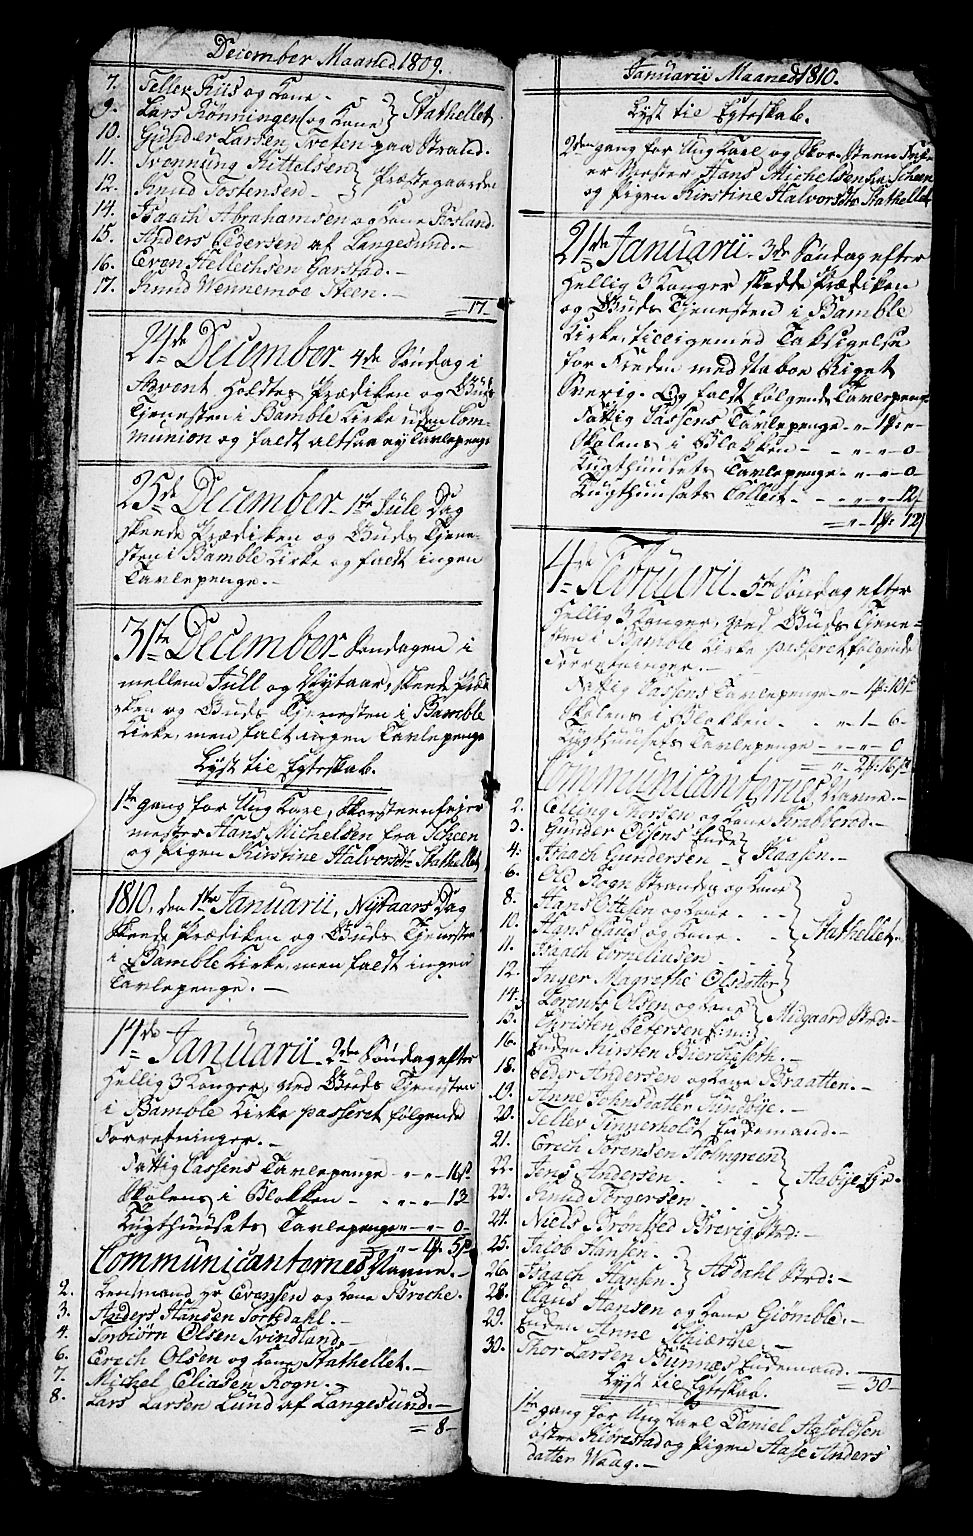 December Maaned 1809.
7. Teller Riis og Kone -
9. Lars Rönningen (og Kone } Stathellet
10. Gunder Larsen Tveten paa Strand.
11. Svenning Kittelsen
12. Knud Tostensen - } Præstegaarden
14. Isaach Abrahamsen og Kone Fosland
15. Anders Pedersen af Langesund. -
16. Even Kellechsen Garstad. -
17. Knud Wennemoe Steen. -
= 17 -
24de December - 4de Søndag i
Advent holdtes Prædiken og Guds
Tjenesten i Bamble Kirke uden Com-
munion og faldt altsaa ey Tavlepenge
25de December - 1ste Jule Dag
skeede Prædiken og Guds Tjene-
sten i Bamble Kirke og faldt ingen
Tavlepenge. -
31te December - Søndagen i
mellem Juul og Nytaar, skeede Prædi
ken og Guds Tjenesten i Bamble
Kirke, men falt ingen Tavlepenge
Lyst til Egteskab.
1ste gang for Ung Karl, Skorsteenfeier
mester Hans Michelsen fra Scheen
og Pigen Kirstine Halvorsdtr Stathellet
1810, den 1ste Januarii, Nytaars Dag
skeede Prædiken og Guds Tjenesten
i Bamble Kirke, men faldt ingen
Tavlepenge. -
14de Januarii - 2den Søndag efter
Hellig 3 Konger, ved Guds Tjenesten
i Bamble Kirke passeret følgende
Forretninger. -
Fattig Cassens Tavlepenge - " - " - 16 s
Skolens i Blokken - - " - " - 13
Tugthuusets Tavlepenge " - " - 0 -
= " - 1 - 5 s
Communicanternes Navne. -
2. Lensmand Evensen og Kone Broche.
3. Anders Hansen Torsdahl. -
4. Torbiørn Olsen Svindland. -
6. Erich Olsen og Kone Stathellet. -
7. Michel Eliasen Rogn. -
8. Lars Larsen Lund af Langesund. -
= 8 -
Januarii Maaned 1810.
Lyst til Egteskab.
2den gang for Ung Karl og Skor-Steen Fei-
er Mester Hans Michelsen fra Scheen
og Pigen Kirstine Halvorsdtr Stathellet
21de Januarii - 3de Søndag efter
Hellig 3 Konger skedde Prædiken
og Guds Tjenesten i Bamble
Kirke, tilligemed Taksigelse
for Freden med Naboe Riget
Sverig. Og faldt følgende Tavlepenge
Fattig Cassens Tavlepenge - " - 1 - " -
Skolens i Blokken - - " - " - 0
Tugthuusets Tavlepenge - " - " - 0
Tugthuusets Collect. - - " - " - 12
= " - 1 - 12
4de Februarii - 5te Søndag efter
Hellig 3 Konger, ved Guds Tjene-
sten i Bamble Kirke passeret følgende
Forretninger. -
Fattig Cassens Tavlepenge - " - 1 - 10 s
Skolens i Blokken - " - 1 - 6 -
Tugthuusets Tavlepenge - " - " - 0
= " - 2 - 16 s
Communicanternes Navne. -
2. Elling Thorsen og Kone Krabberød. -
3. Gunder Olsens Enke
4. Isaach Gundersen - } Haasen. -
6. Ole Rogn Stranden og Kone
8. Hans Ottesen og Kone - -
10. Hans Saus og Kone - -
11. Isaach Corneliusen - -
12. Inger Magrethe Olsdatter } Stathellet. -
14. Lorents Olsen og Kone
15. Christen Petersen Enke } Midgaard Strd: -
16. Enken Kirsten Bierkeseth. -
18. Peder Andersen og Kone Braatten. -
19. Anne Johnsdatter Sundbye. -
20. Teller Tinnerholdt Enkemand. -
21. Erich Sørensen Holmgreen
22. Jens Andersen - -
23. Knud Torgersen - - } Aabye Eje. -
24. Niels Brönsted Brevig Strd: -
25. Jacob Hansen - -
26. Isaach Hansen. - } Aasdahl Strd: -
28. Claus Hansen og Kone Giömble. -
29. Enken Anne Schiærsiøe. -
30. Thor Larsen Bunnæs Enkemand. -
= 30 -
Lyst til Egteskab.
1ste gang for Ung Karl Daniel Asloldsen
østre Kiørestad og Pigen Aase Anders
datter Waag. -